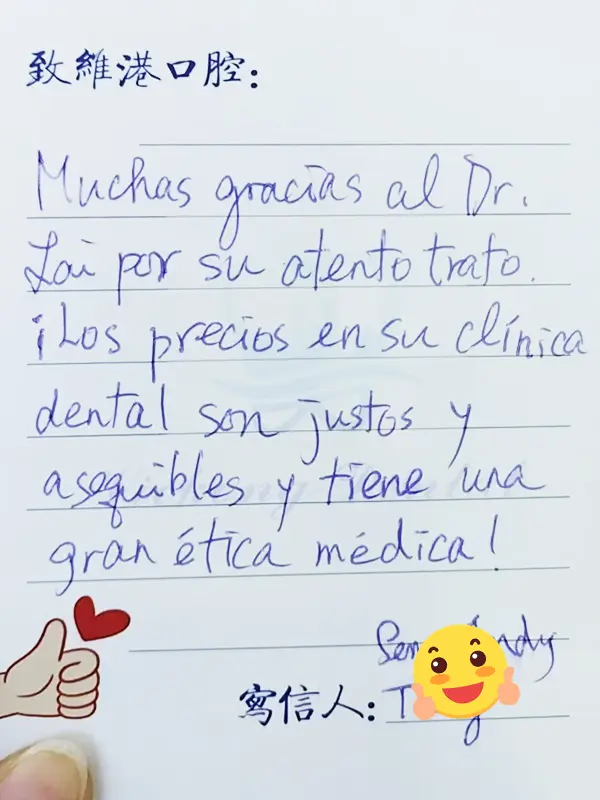 致維港口腔：
Muchas gracias al Dr.
Lai por su atento trato.
¡Los precios en su clínica
dental son justos y
asequibles y tiene una
gran ética médica!
寫信人：